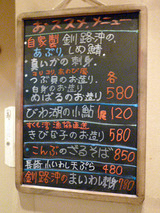 おススメメニュー
自家製 釧路沖の
あぶり しめ鯖
真いかの刺身
つぶ貝のお造り 各
めばるのお造り 580
びわ湖の小鮎 120
きびな子のお造り 580
こんぶのざるそば 850
長崎 小いわし天ぷら 480
釧路沖のまいわし刺身